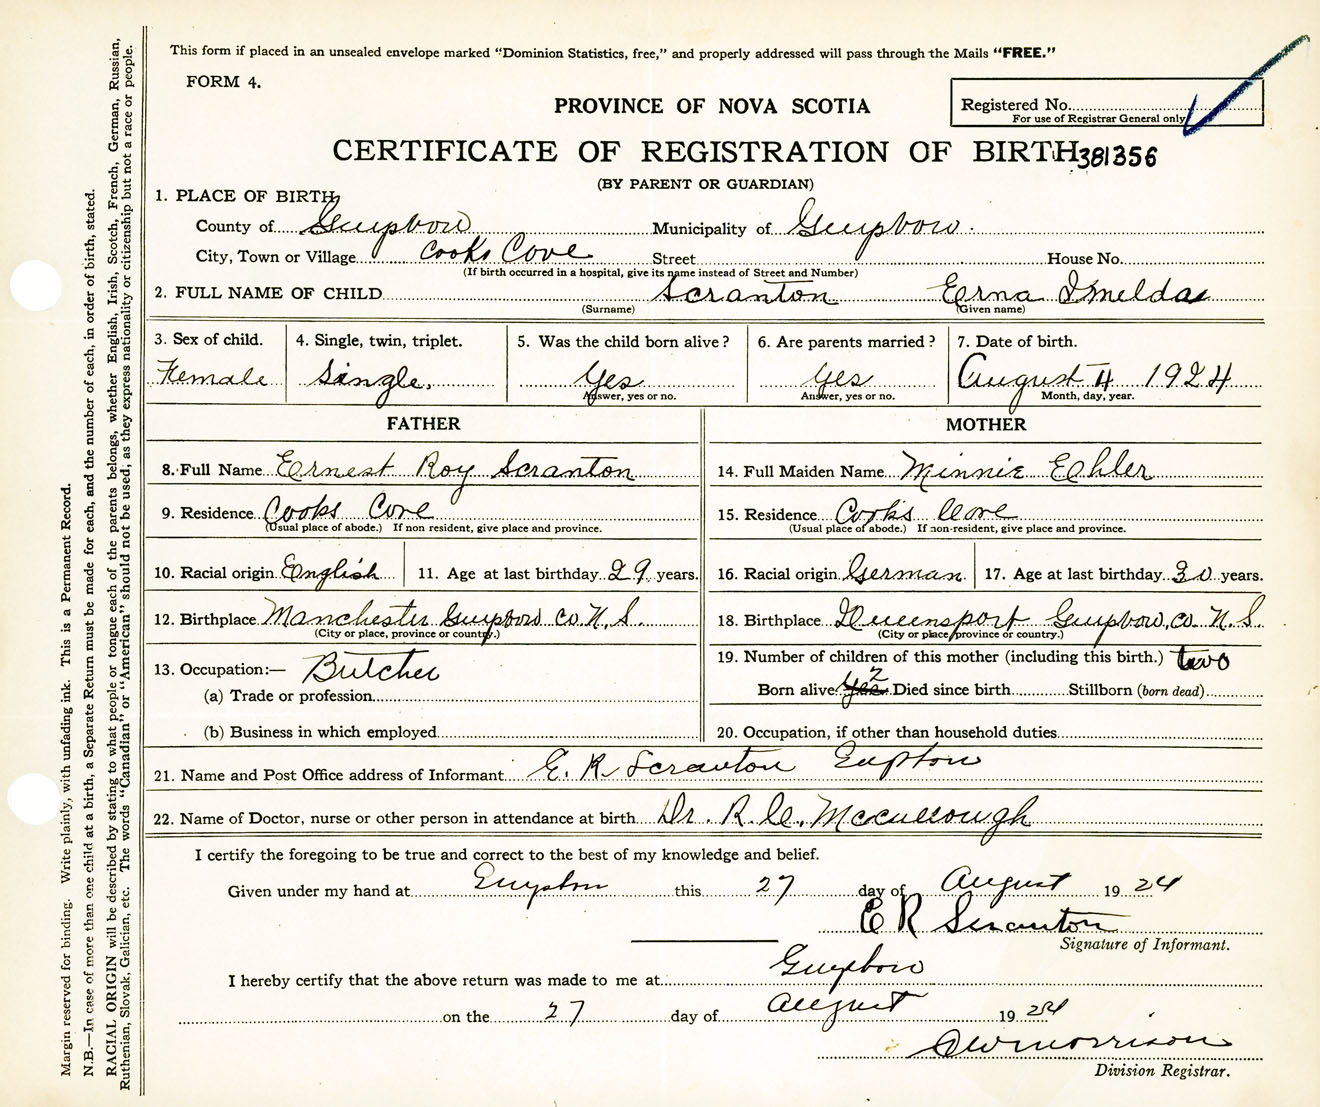 This form if placed in an unsealed envelope marked "Dominion Statistics, free," and properly addressed will pass through the Mails "FREE."
FORM 4.
PROVINCE OF NOVA SCOTIA
Registered No.
For use of Registrar General only
CERTIFICATE OF REGISTRATION OF BIRTH 381356
(BY PARENT OR GUARDIAN)
1. PLACE OF BIRTH
County of Guysboro Municipality of Guysboro.
City, Town or Village Cooks Cove Street House No.
(If birth occurred in a hospital, give its name instead of Street and Number)
2. FULL NAME OF CHILD Scranton Erna Imelda
(Surname) (Given name)
3. Sex of child. 4. Single, twin, triplet. 5. Was the child born alive? 6. Are parents married? 7. Date of birth.
Female Single. Yes Yes August 4 1924
Answer, yes or no. Answer, yes or no. Month, day, year.
FATHER MOTHER
8. Full Name Ernest Roy Scranton
14. Full Maiden Name Minnie Ehler
9. Residence Cooks Cove
(Usual place of abode.) If non resident, give place and province.
15. Residence Cooks Cove
(Usual place of abode.) If non-resident, give place and province.
10. Racial origin English 11. Age at last birthday 29 years.
16. Racial origin German 17. Age at last birthday 30 years.
12. Birthplace Manchester Guysboro Co. N. S.
(City or place, province or country.)
18. Birthplace Queensport Guysboro, Co. N. S.
(City or place, province or country.)
13. Occupation:— Butcher
(a) Trade or profession
(b) Business in which employed
19. Number of children of this mother (including this birth.) two
Born alive Yes 2 Died since birth Stillborn (born dead)
20. Occupation, if other than household duties
21. Name and Post Office address of Informant E. R. Scranton
22. Name of Doctor, nurse or other person in attendance at birth Dr. R. C. McCullough
I certify the foregoing to be true and correct to the best of my knowledge and belief.
Given under my hand at this 27 day of August 19 24
E R Scranton
Signature of Informant.
I hereby certify that the above return was made to me at Guysboro
on the 27 day of August 19 24
Morrison
Division Registrar.
Margin reserved for binding. Write plainly, with unfading ink. This is a Permanent Record.
N.B.—In case of more than one child at a birth, a Separate Return must be made for each, and the number of each, in order of birth, stated.
RACIAL ORIGIN will be described by stating to what people or tongue each of the parents belongs, whether English, Irish, Scotch, French, German, Russian,
Ruthenian, Slovak, Galician, etc. The words "Canadian" or "American" should not be used, as they express nationality or citizenship but not a race or people.